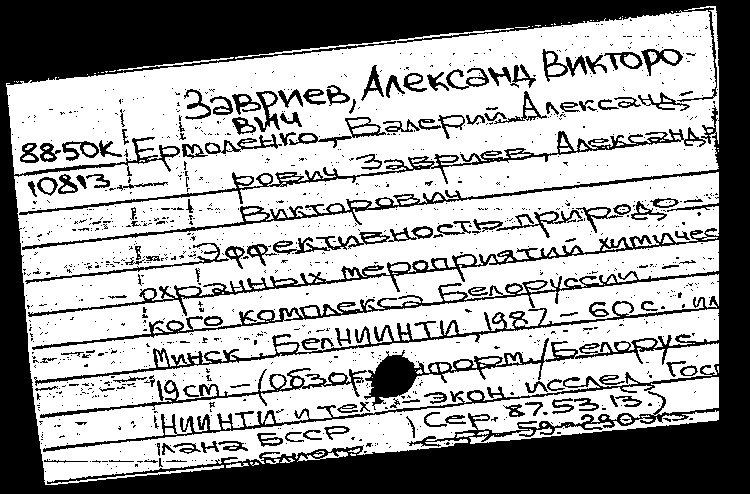 Завриев, Александ Викторо
вич
88-50К Ермоленко, Валерий Александ-
10813 рович, Завриев, Александр
Викторович
Эффективность природо-
охранных мероприятий химичес
кого комплекса Белоруссии. —
Минск : БелНИИНТИ, 1987. - 60 с. : ил
19 см. - (Обзор. информ. / Белорус.
НИИНТИ и тех.- экон. исслед. Гос
лана БССР. ) Сер. 87.53.13.)
Библиогр. с. 57-59. - 290 экз.